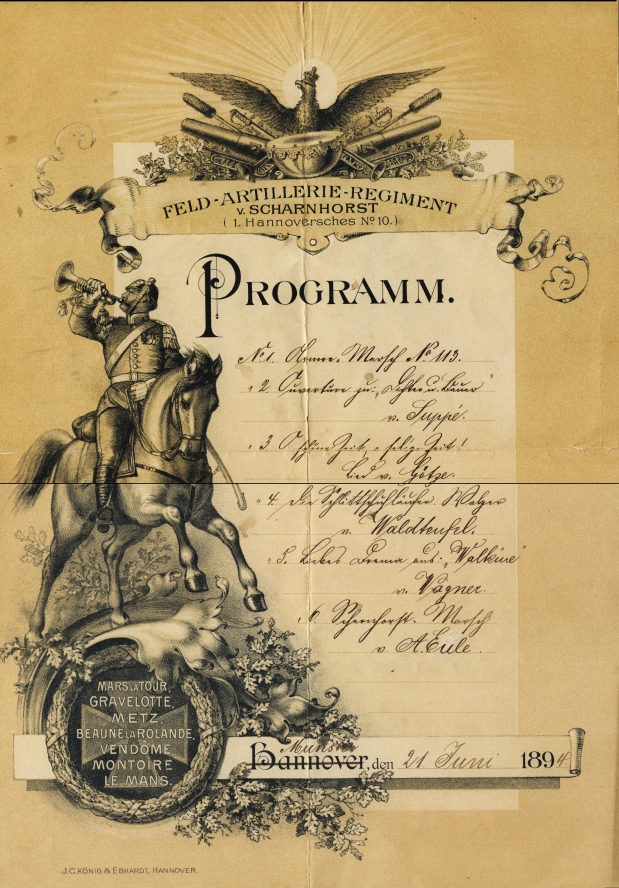 FELD-ARTILLERIE-REGIMENT
V. SCHARNHORST
(1. Hannoversches No 10.)
PROGRAMM.
No 1. Armee-Marsch No 113.
" 2. Ouverture zu: „Dichter u. Bauer"
v. Suppé.
" 3. O schöne Zeit, o selige Zeit!
Lied v. Götze.
" 4. Die Schlittschuhläufer. Walzer
v. Waldteufel.
" 5. Liebes Drama aus: „Walküre"
v. Wagner.
" 6. Scharnhorst-Marsch
v. A. Eule.
MARS LA TOUR,
GRAVELOTTE,
METZ
BEAUNE LA ROLANDE,
VENDÔME
MONTOIRE
LE MANS.
Munster
Hannover, den 21. Juni 1894.
J.C. KÖNIG & EBHARDT, HANNOVER.